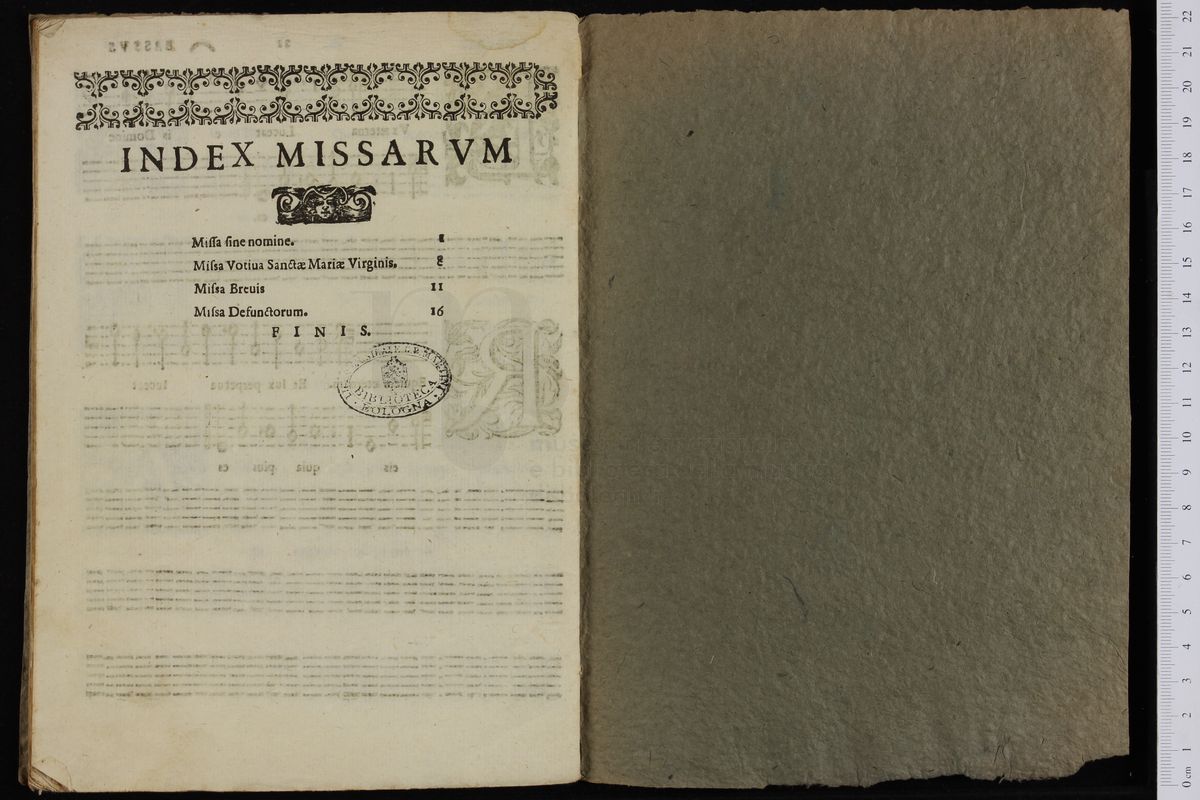 INDEX MISSARVM
Miſſa ſine nomine. 1
Miſsa Votiua Sanctæ Mariæ Virginis. 8
Miſsa Breuis 11
Miſsa Defunctorum. 16
FINIS.
BIBLIOTECA
BOLOGNA
0 cm 1 2 3 4 5 6 7 8 9 10 11 12 13 14 15 16 17 18 19 20 21 22